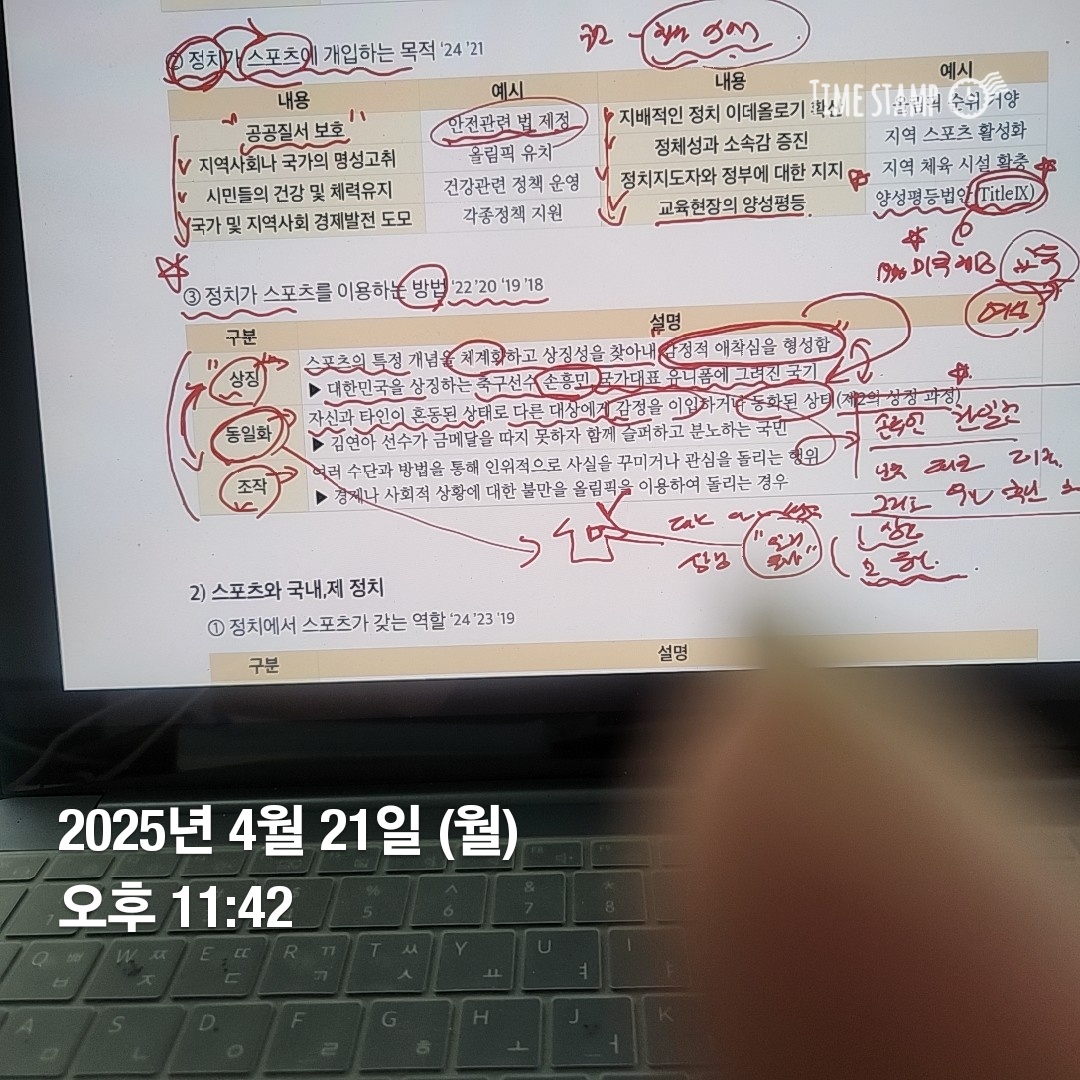 ② 정치가 스포츠에 개입하는 목적 ‘24 ‘21
내용 예시 내용 예시
공공질서 보호 안전관련 법 제정 지배적인 정치 이데올로기 확산
지역사회나 국가의 명성고취 올림픽 유치 정체성과 소속감 증진 지역 스포츠 활성화
시민들의 건강 및 체력유지 건강관련 정책 운영 정치지도자와 정부에 대한 지지 지역 체육 시설 확충
국가 및 지역사회 경제발전 도모 각종정책 지원 교육현장의 양성평등 양성평등법안(TitleIX)
TIME STAMP
미국
교육
여성
③ 정치가 스포츠를 이용하는 방법 ‘22 ‘20 ‘19 ‘18
구분 설명
상징 스포츠의 특정 개념을 체계화하고 상징성을 찾아내 감정적 애착심을 형성함
▶ 대한민국을 상징하는 축구선수 손흥민 국가대표 유니폼에 그려진 국기
동일화 자신과 타인이 혼동된 상태로 다른 대상에게 감정을 이입하거나 동화된 상태(제2의 상징 과정)
▶ 김연아 선수가 금메달을 따지 못하자 함께 슬퍼하고 분노하는 국민
조작 여러 수단과 방법을 통해 인위적으로 사실을 꾸미거나 관심을 돌리는 행위
▶ 경제나 사회적 상황에 대한 불만을 올림픽을 이용하여 돌리는 경우
2) 스포츠와 국내,제 정치
① 정치에서 스포츠가 갖는 역할 ‘24 ‘23 ‘19
구분 설명
2025년 4월 21일 (월)
오후 11:42
% ^ & *
5 6 7 8
Q ㅂ W ㅈ E ㄷ R ㄱ T ㅅ Y ㅛ U ㅕ I ㅑ
A ㅁ S ㄴ D ㅇ F ㄹ G ㅎ H ㅗ J ㅓ K